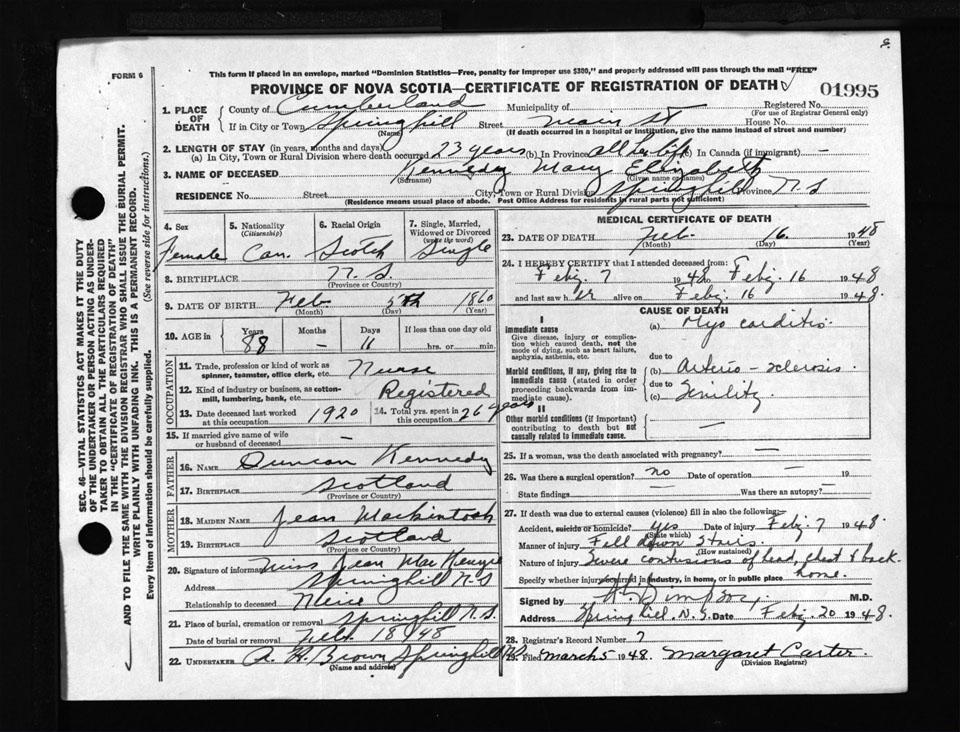 FORM 6
This form if placed in an envelope, marked "Dominion Statistics—Free, penalty for improper use $300," and properly addressed will pass through the mail "FREE"
PROVINCE OF NOVA SCOTIA—CERTIFICATE OF REGISTRATION OF DEATH
01995
1. PLACE OF DEATH
County of Cumberland Municipality of Registered No.
(For use of Registrar General only)
If in City or Town Springhill Street Main St House No.
(Name) (If death occurred in a hospital or institution, give the name instead of street and number)
2. LENGTH OF STAY (in years, months and days)
(a) In City, Town or Rural Division where death occurred 23 years (b) In Province all her life (c) In Canada (if immigrant) —
3. NAME OF DECEASED Kennedy Mary Elizabeth
(Surname) (Given name or names)
RESIDENCE No. Street City, Town or Rural Division Springhill Province N.S
(Residence means usual place of abode. Post Office Address for residents in rural parts not sufficient)
4. Sex Female
5. Nationality (Citizenship) Can.
6. Racial Origin Scotch
7. Single, Married, Widowed or Divorced (write the word) Single
8. BIRTHPLACE N.S.
(Province or Country)
9. DATE OF BIRTH Feb 5th 1860
(Month) (Day) (Year)
10. AGE in Years Months Days If less than one day old
88 — 11 hrs. or min.
OCCUPATION
11. Trade, profession or kind of work as spinner, teamster, office clerk, etc. Nurse
12. Kind of industry or business, as cotton-mill, lumbering, bank, etc. Registered
13. Date deceased last worked at this occupation 1920
14. Total yrs. spent in this occupation 26 years
15. If married give name of wife or husband of deceased —
FATHER
16. NAME Duncan Kennedy
17. BIRTHPLACE Scotland
(Province or Country)
MOTHER
18. MAIDEN NAME Jean Mackintosh
19. BIRTHPLACE Scotland
(Province or Country)
20. Signature of informant Miss Jean MacKenzie
Address Springhill N.S
Relationship to deceased Neice
21. Place of burial, cremation or removal Springhill N.S.
Date of burial or removal Feb. 18 1948
22. UNDERTAKER A. H. Brown Springhill N.S
(Name and address)
MEDICAL CERTIFICATE OF DEATH
23. DATE OF DEATH Feb. 16. 1948
(Month) (Day) (Year)
24. I HEREBY CERTIFY that I attended deceased from:
Feby 7 1948 to Feby 16 1948
and last saw her alive on Feby 16 1948.
CAUSE OF DEATH
I
Immediate cause
Give disease, injury or complication which caused death, not the mode of dying, such as heart failure, asphyxia, asthenia, etc.
(a) Myo carditis.
due to
Morbid conditions, if any, giving rise to immediate cause (stated in order proceeding backwards from immediate cause).
(b) Arterio-sclerosis.
due to
(c) Senility
II
Other morbid conditions (if important) contributing to death but not causally related to immediate cause. —
25. If a woman, was the death associated with pregnancy? —
26. Was there a surgical operation? no Date of operation — 19
State findings — Was there an autopsy? —
27. If death was due to external causes (violence) fill in also the following:
Accident, suicide or homicide? yes Date of injury Feby 7 1948.
(State which)
Manner of injury Fell down stairs.
(How sustained)
Nature of injury Severe contusions of head, chest & back.
Specify whether injury occurred in industry, in home, or in public place home.
Signed by M.D.
Address Springhill. N.S. Date Feby 20 1948.
28. Registrar's Record Number 7
29. Filed March 5 1948. Margaret Carter.
(Division Registrar)
SEC. 46—VITAL STATISTICS ACT MAKES IT THE DUTY
OF THE UNDERTAKER OR PERSON ACTING AS UNDER-
TAKER TO OBTAIN ALL THE PARTICULARS REQUIRED
IN THE "CERTIFICATE OF REGISTRATION OF DEATH"
AND TO FILE THE SAME WITH THE DIVISION REGISTRAR WHO SHALL ISSUE THE BURIAL PERMIT.
WRITE PLAINLY WITH UNFADING INK. THIS IS A PERMANENT RECORD.
Every item of information should be carefully supplied. (See reverse side for instructions.)